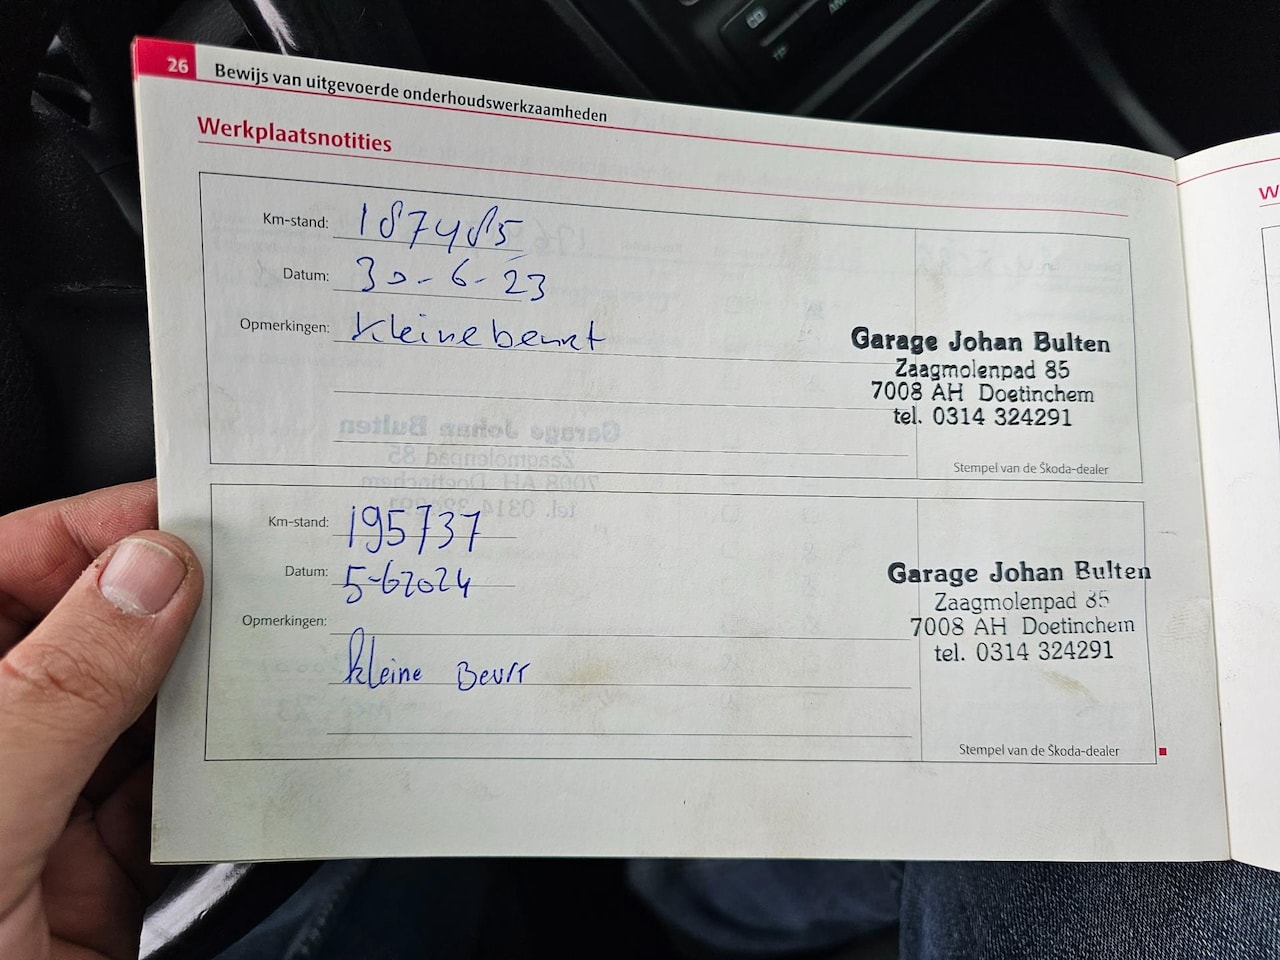 26 Bewijs van uitgevoerde onderhoudswerkzaamheden
Werkplaatsnotities
Km-stand: 187485
Datum: 30-6-23
Opmerkingen: kleine beurt
Garage Johan Bulten
Zaagmolenpad 85
7008 AH Doetinchem
tel. 0314 324291
Stempel van de Škoda-dealer
Km-stand: 195737
Datum: 5-62024
Opmerkingen:
kleine Beurt
Garage Johan Bulten
Zaagmolenpad 85
7008 AH Doetinchem
tel. 0314 324291
Stempel van de Škoda-dealer
W
TP